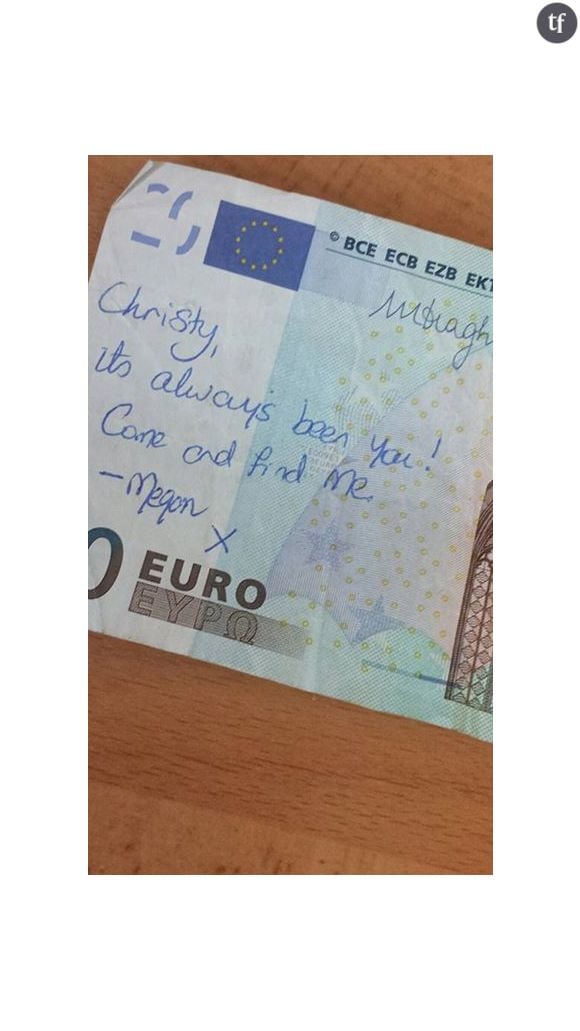 tf
© BCE ECB EZB EKT
Christy,
its always been you!
Come and find me.
-Megan
X
0 EURO
ΕΥΡΩ